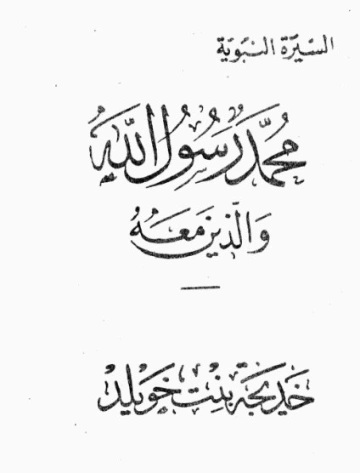 السيرة النبوية
محمد رسول الله
والذين معه
خديجة بنت خويلد